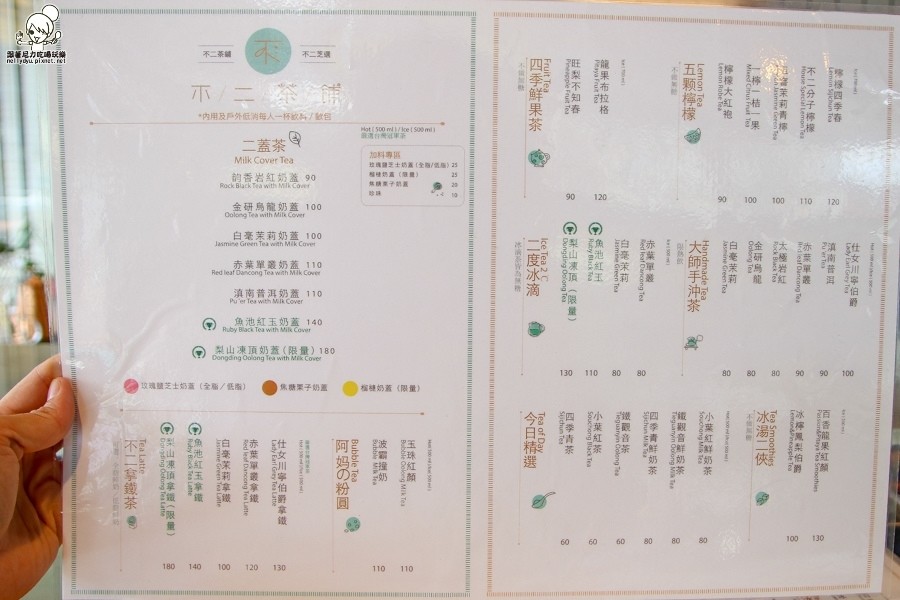 跟著尼力吃喝玩樂
nellydyu.pixnet.net
不二茶鋪
不二芝邊
不二茶鋪
*內用及戶外低消每人一杯飲料/甜包
二蓋茶
Milk Cover Tea
韵香岩紅奶蓋 90
Rock Black Tea with Milk Cover
金研烏龍奶蓋 100
Oolong Tea with Milk Cover
白毫茉莉奶蓋 100
Jasmine Green Tea with Milk Cover
赤葉單叢奶蓋 110
Red leaf Dancong Tea with Milk Cover
滇南普洱奶蓋 110
Pu'er Tea with Milk Cover
魚池紅玉奶蓋 140
Ruby Black Tea with Milk Cover
梨山凍頂奶蓋(限量) 180
Dongding Oolong Tea with Milk Cover
Hot ( 500 ml ) / Ice ( 500 ml )
嚴選台灣冠軍茶
加料專區
玫瑰鹽芝士奶蓋(全脂/低脂) 25
榴槤奶蓋(限量) 25
焦糖栗子奶蓋 20
珍珠 10
玫瑰鹽芝士奶蓋(全脂/低脂)
焦糖栗子奶蓋
榴槤奶蓋(限量)
Tea Latte
不二拿鐵茶
梨山凍頂拿鐵(限量)
Dongding Oolong Tea Latte
180
魚池紅玉拿鐵
Ruby Black Tea Latte
140
白毫茉莉拿鐵
Jasmine Green Tea Latte
100
赤葉單叢拿鐵
Red leaf Dancong Tea Latte
120
仕女川寧伯爵拿鐵
Lady Earl Grey Tea Latte
130
Bubble Tea
阿媽の粉圓
波霸撞奶
Bubble Milk Tea
110
玉珠紅顏
Bubble Oolong Milk Tea
110
Fruit Tea
四季鮮果茶
不需加糖
旺梨不知春
Pineapple Fruit Tea
90
龍果布拉格
Pitaya Fruit Tea
120
Lemon Tea
五顆檸檬
不做無糖
檸檬大紅袍
Lemon Robe Tea
90
一檸二桔一果
Mixed Citrus Fruit Tea
100
茉莉青檸
100
不二分子檸檬
House Special Lemon Tea
110
檸檬四季春
Lemon Sijichun Tea
120
Ice Tea 2 ℃
二度冰滴
冰滴茶皆為無糖
梨山凍頂(限量)
Dongding Oolong Tea
130
魚池紅玉
Ruby Black Tea
110
白毫茉莉
Jasmine Green Tea
80
赤葉單叢
Red leaf Dancong Tea
80
Handmade Tea
大師手沖茶
白毫茉莉
Jasmine Green Tea
80
金研烏龍
Oolong Tea
80
太極岩紅
Rock Black Tea
80
赤葉單叢
Red leaf Dancong Tea
90
滇南普洱
Pu'er Tea
90
仕女川寧伯爵
Lady Earl Grey Tea
100
Tea of Day
今日精選
四季青茶
Sijichun Tea
60
小葉紅茶
Soucheng Black Tea
60
鐵觀音茶
Tieguanyin Oolong Tea
60
四季青鮮奶茶
Sijichun Milk Tea
80
鐵觀音鮮奶茶
Tieguanyin Oolong Milk Tea
80
小葉紅鮮奶茶
Soucheng Milk Tea
80
Tea Smoothies
冰湯二俠
不做無糖
冰檸鳳梨伯爵
Lemon&Pineapple Tea
100
百香龍果紅顏
130